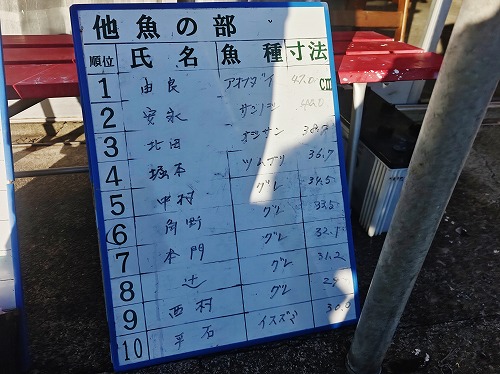 他魚の部
順位 氏名 魚種 寸法
1 由良 アオブダイ 47.0 cm
2 安永 サンノジ
3 北田 オジサン 38.7
4 塚本 ツムブリ 36.7
5 中村 グレ 34.5
6 角野 グレ 33.5
7 本門 グレ 32.1
8 辻 グレ 31.2
9 西村 グレ
10 平石 イスズミ 30.0